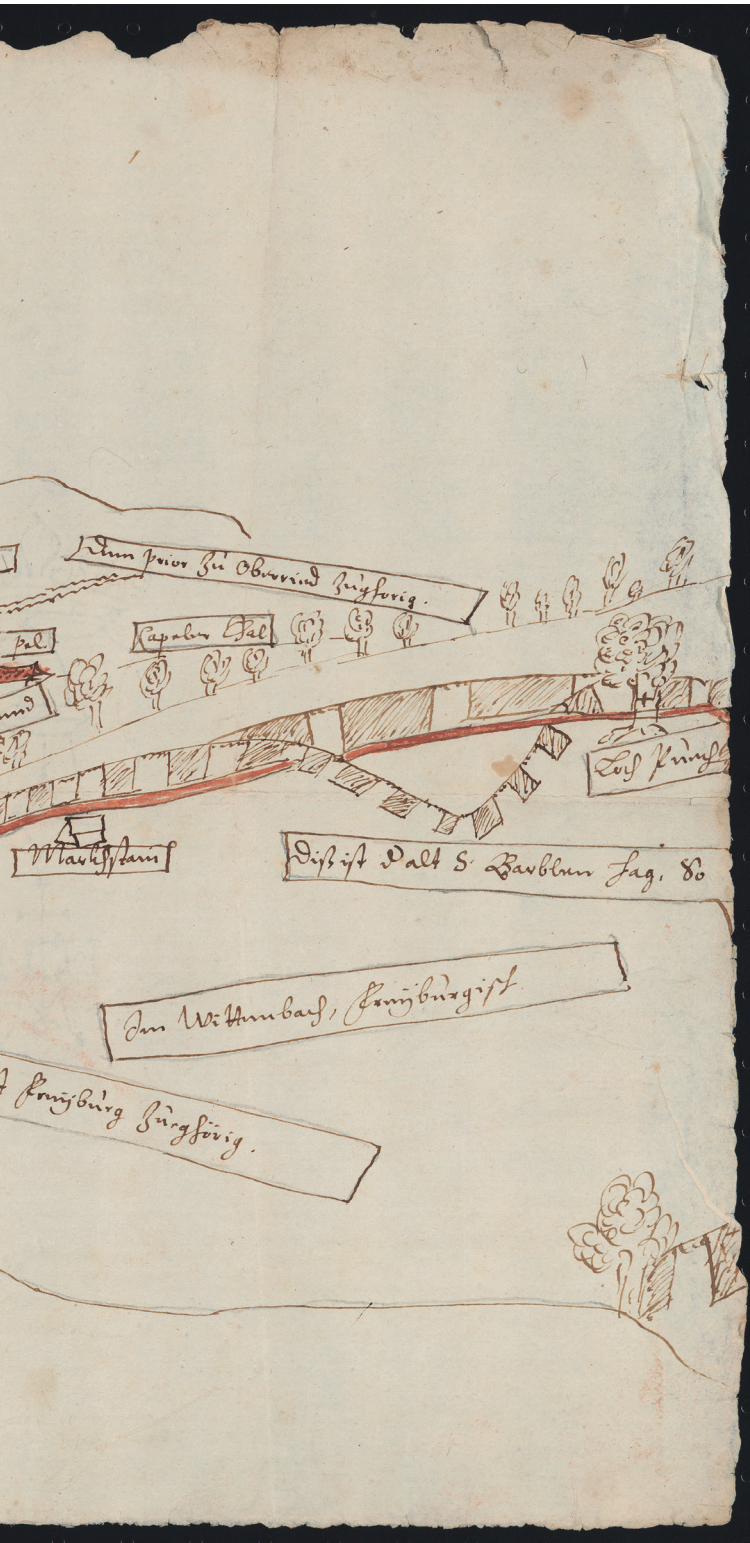 Dem Prior Zu Oberried Zughörig.
pel.
Capeler Thal
und
Loch Puech
Markhstain
Diß ist d alt S. Barblen hag, So
Im Wittenbach, Freyburgisch
Freyburg Zueghörig.